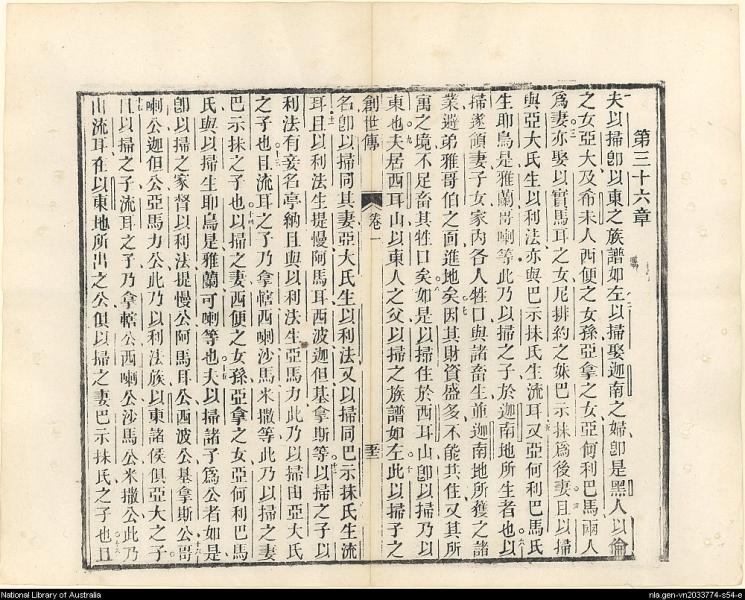 第三十六章
夫以掃卽以東之族譜如左以掃娶迦南之婦卽是黑人以倫
之女亞大及希未人西便之女孫亞拿之女亞何利巴馬兩人
爲妻亦娶以實馬耳之女尼排約之妹巴示抹爲後妻且以掃
與亞大氏生以利法亦與巴示抹氏生流耳又亞何利巴馬氏
生耶鳥是雅蘭哥喇等此乃以掃之子於迦南地所生者也以
掃遂領妻子女家內各人牲口與諸畜生並迦南地所獲之諸
業避弟雅哥伯之面進地矣因其財資盛多不能共住又其所
寓之境不足畜其牲口矣如是以掃住於西耳山卽以掃乃以
東也夫居西耳山以東人之父以掃之族譜如左此以掃子之
創世傳 卷一
名卽以掃同其妻亞大氏生以利法又以掃同巴示抹氏生流
耳且以利法生提慢阿馬耳西波迦但基拿斯等以掃之子以
利法有妾名亭納且與以利法生亞馬力此乃以掃由亞大氏
之子也且流耳之子乃拿轄西喇沙馬米撒等此乃以掃之妻
巴示抹之子也以掃之妻西便之女孫亞拿之女亞何利巴馬
氏與以掃生耶鳥是雅蘭可喇等也夫以掃諸子爲公者如是
卽以掃之家督以利法提慢公阿馬耳公西波公基拿斯公哥
喇公迦但公亞馬力公此乃以利法族以東諸侯俱亞大之子
且以掃之子流耳之子乃拿轄公西喇公沙馬公米撒公此乃
出流耳在以東地所出之公俱以掃之妻巴示抹氏之子也且
National Library of Australia
nla.gen-vn2033774-s54-e